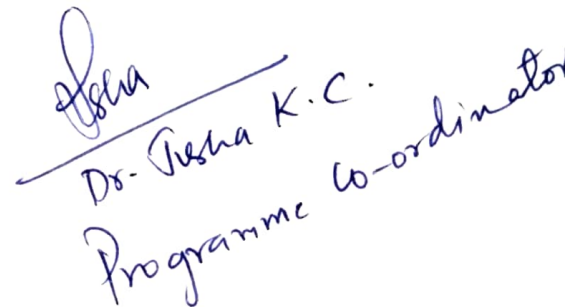 Dr. Jisha K.C.
Programme Co-ordinator